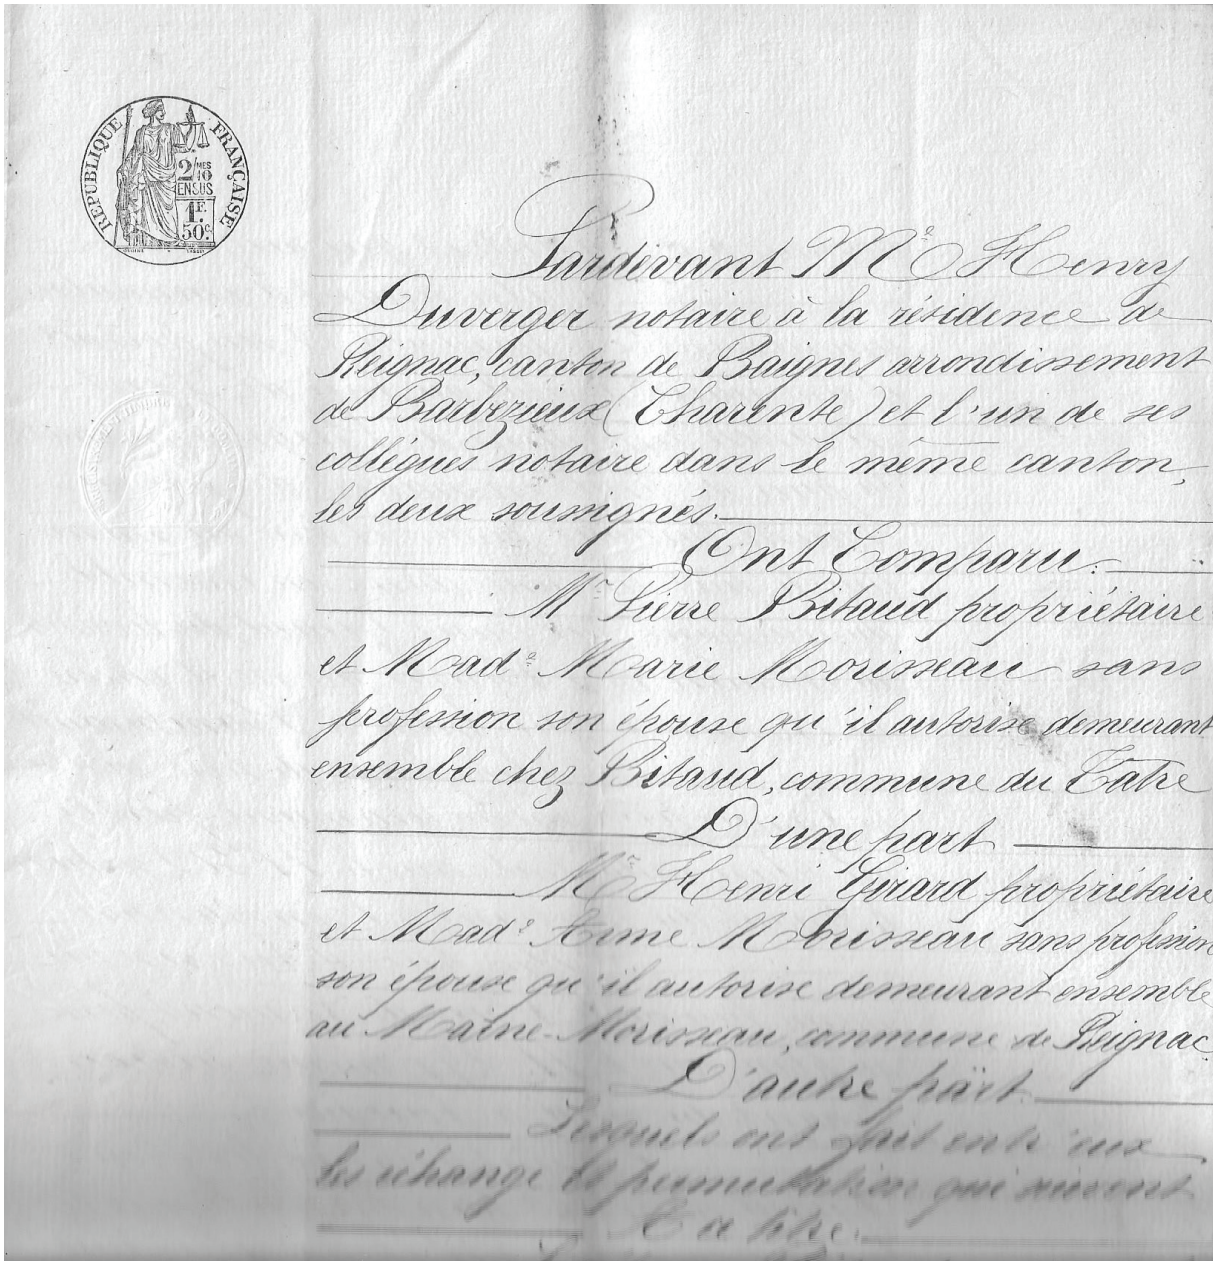 RÉPUBLIQUE FRANÇAISE
2/10 MES
EN SUS
1F.
50c.
Pardevant Me Henry
Duverger notaire à la résidence de
Reignac, canton de Baignes arrondissement
de Barbezieux (Charente) et l'un de ses
collègues notaire dans le même canton,
les deux soussignés.
Ont Comparu:
Mr Pierre Bitaud propriétaire
et Made Marie Morisseau sans
profession son épouse qu'il autorise demeurant
ensemble chez Bitaud, commune du Tatre
D'une part
Mr Henri Girard propriétaire
et Made Anne Morisseau sans profession
son épouse qu'il autorise demeurant ensemble
au Maine-Morisseau, commune de Reignac
D'autre part
Lesquels ont fait entr'eux
les échange et permutation qui suivent
à titre